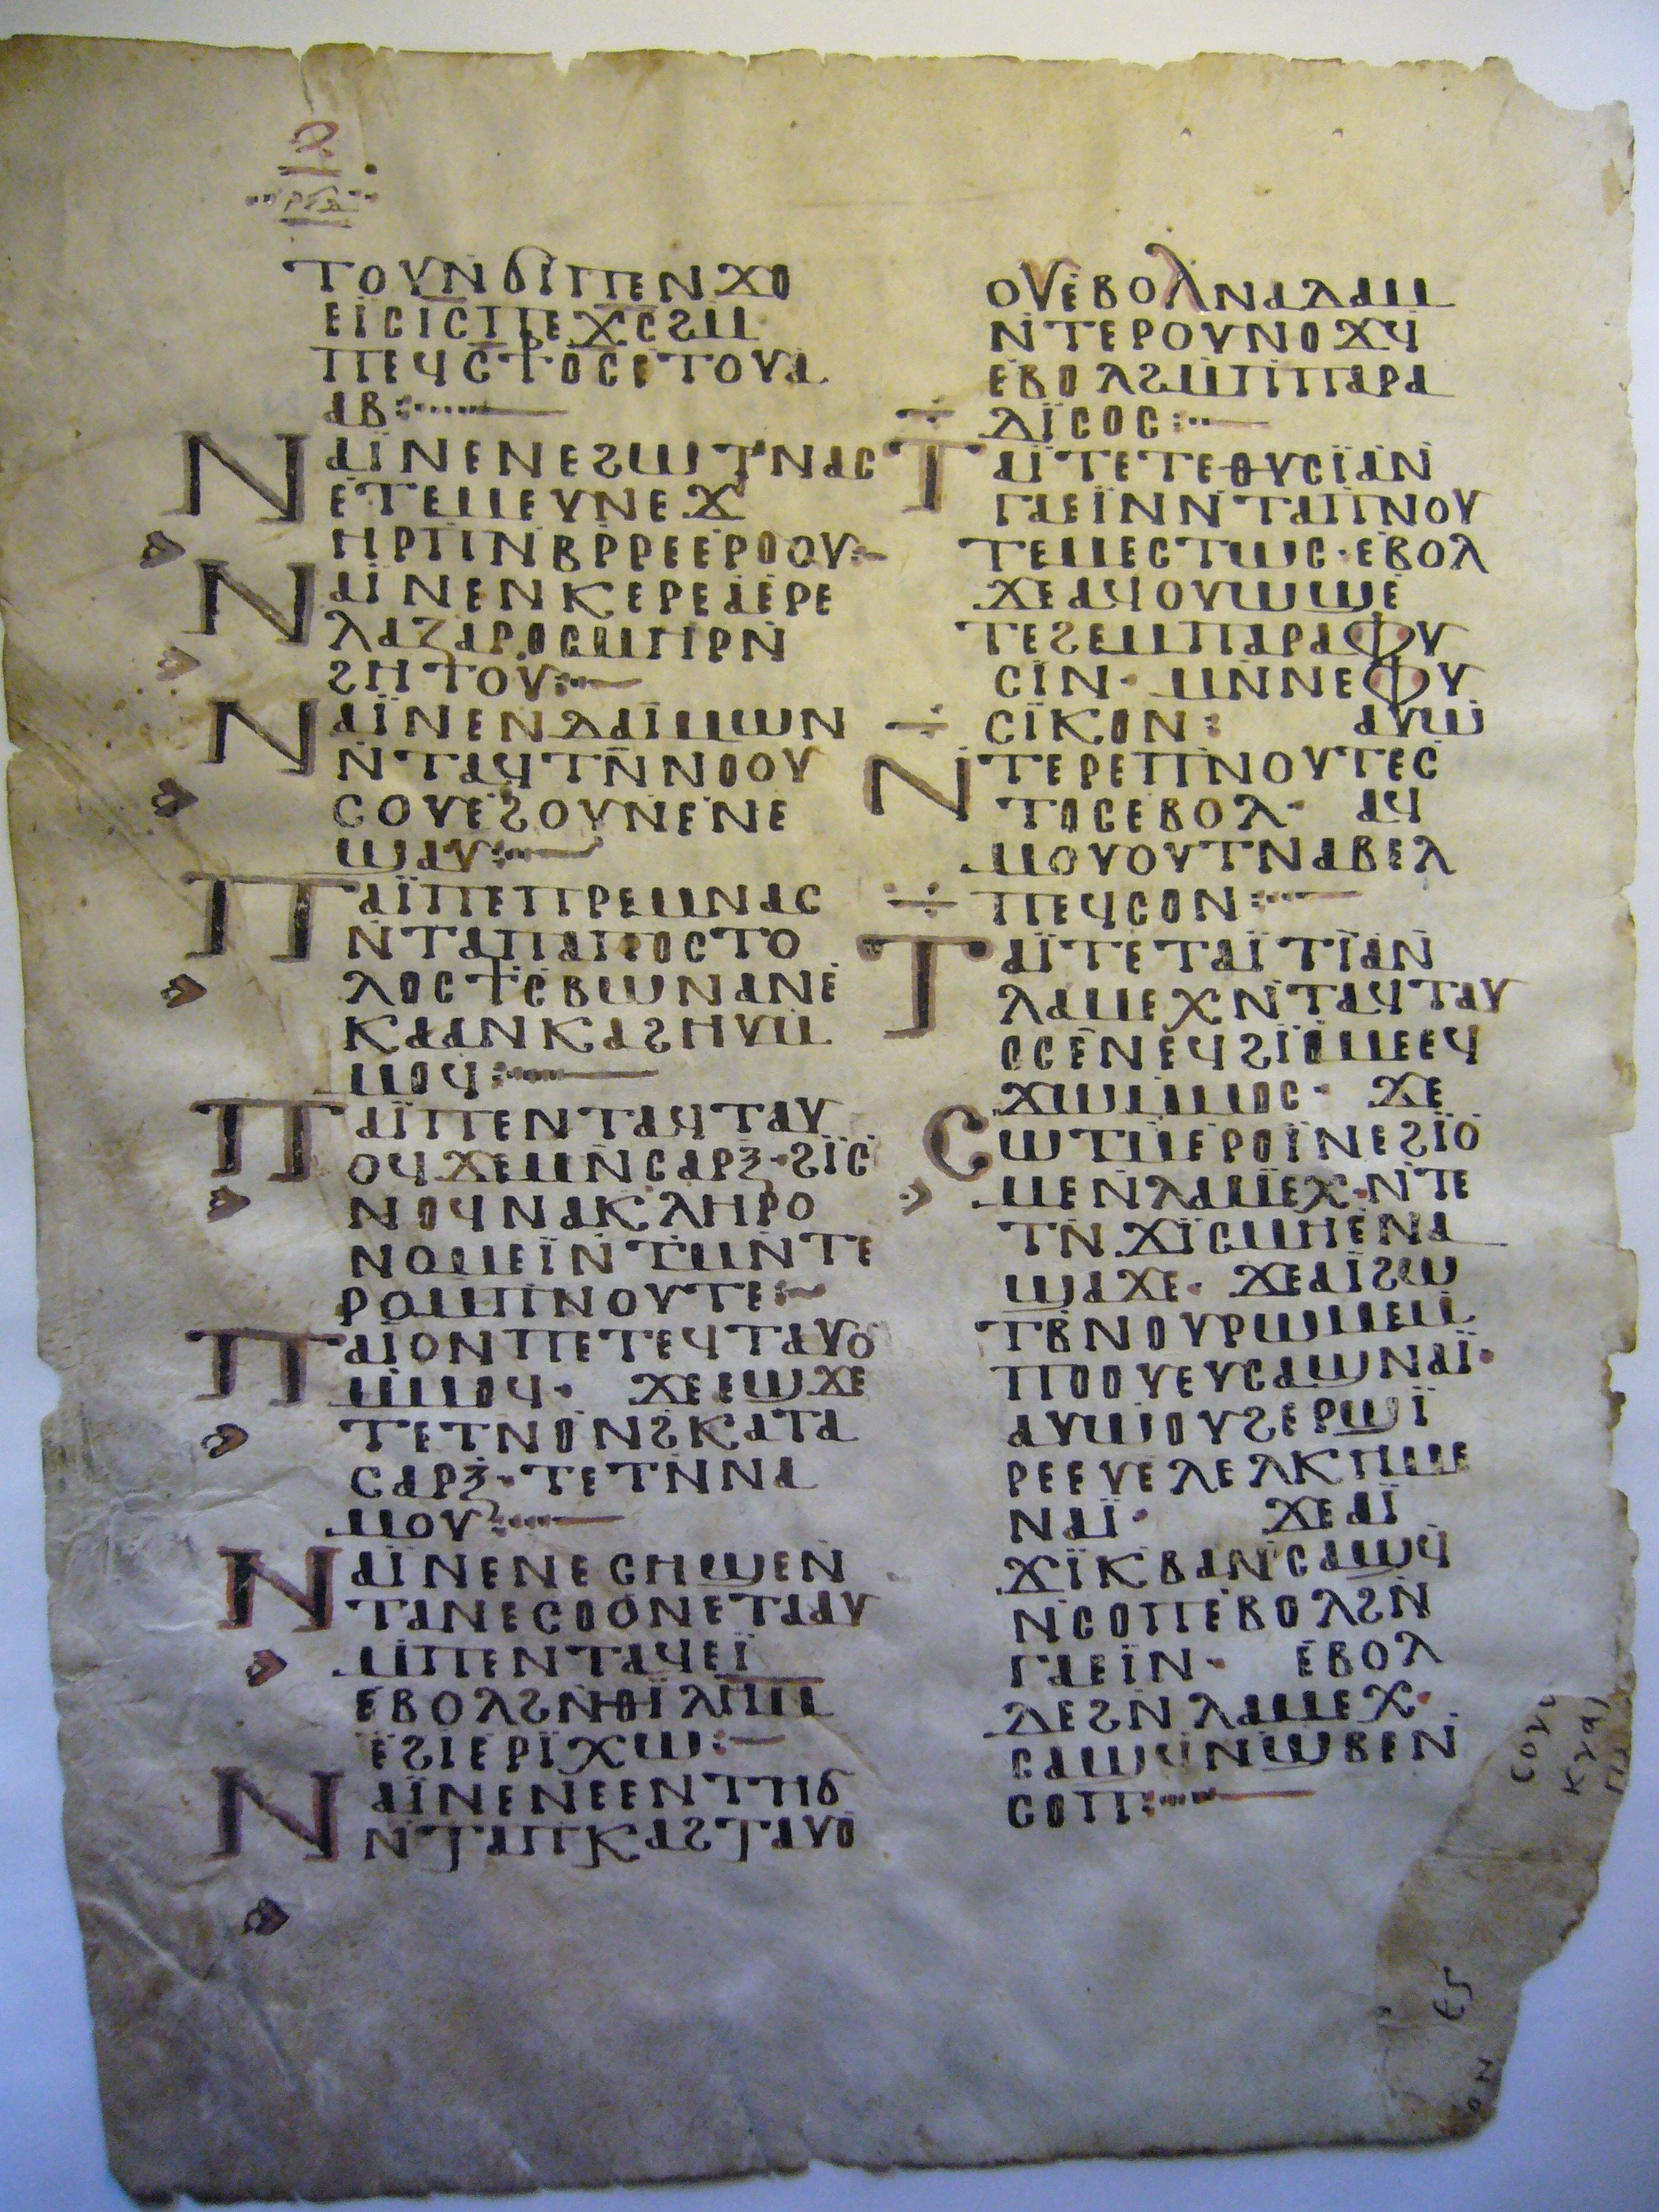 ⲧⲟⲩⲛϭⲓⲡⲉⲛϫⲟ
ⲉⲓⲥⲓⲥⲡⲉⲭⲥϩⲙ
ⲡⲉϥⲥϯⲟⲥⲉⲧⲟⲩⲁ
ⲁⲃ:
ⲛⲁⲓ̈ⲛⲉⲛⲉϩⲱⲧⲛⲁⲥ
ⲉⲧⲉⲙⲉⲩⲛⲉϫ
ⲏⲣⲡⲛⲃⲣⲣⲉⲉⲣⲟⲟⲩ:
ⲛⲁⲓ̈ⲛⲉⲛⲕⲉⲣⲉⲁⲉⲣⲉ
ⲗⲁⲍⲁⲣⲟⲥϣⲏⲣⲛ
ϩⲏⲧⲟⲩ:
ⲛⲁⲓ̈ⲛⲉⲛⲇⲁⲓ̈ⲙⲱⲛ
ⲛⲧⲁϥⲧⲛⲛⲟⲟⲩ
ⲥⲟⲩⲉϩⲟⲩⲛⲉⲛⲉ
ϣⲁⲩ:
ⲡⲁⲓ̈ⲡⲉⲡⲣⲉⲙⲛⲁⲥ
ⲛⲧⲁⲡⲁⲡⲟⲥⲧⲟ
ⲗⲟⲥϯⲥⲃⲱⲛⲁⲛⲉ
ⲕⲁⲁⲛⲕⲁϩⲏⲩⲙ
ⲙⲟϥ:
ⲡⲁⲓ̈ⲡⲉⲛⲧⲁϥⲧⲁⲩ
ⲟϥϫⲉⲙⲛⲥⲁⲣⲝ·ϩⲓ̈ⲥ
ⲛⲟϥⲛⲁⲕⲗⲏⲣⲟ
ⲛⲟⲙⲉⲓ̈ⲛⲧⲙⲛⲧⲉ
ⲣⲟⲙⲡⲛⲟⲩⲧⲉ:
ⲡⲁⲓ̈ⲟⲛⲡⲉⲧⲉϥⲧⲁⲩⲟ
ⲙⲙⲟϥ· ϫⲉⲉϣϫⲉ
ⲧⲉⲧⲛⲟⲛϩⲕⲁⲧⲁ
ⲥⲁⲣⲝ·ⲧⲉⲧⲛⲛⲁ
ⲙⲟⲩ:
ⲛⲁⲓ̈ⲛⲉⲛⲉⲥⲏϣⲉⲛ
ⲧⲁⲛⲉⲥⲟⲟⲛⲉⲧⲁⲁⲩ
ⲙⲡⲉⲛⲧⲁϥⲉⲓ̈
ⲉⲃⲟⲗϩⲛⲑⲓ̈ⲗⲏⲙ
ⲉϩⲓⲉⲣⲓ̈ⲭⲱ:
ⲛⲁⲓ̈ⲛⲉⲛⲉⲉⲛⲧⲏϭ
ⲛⲧⲁⲡⲕⲁϩⲧⲁⲩⲟ
ⲟⲩⲉⲃⲟⲗⲛⲁⲇⲁⲙ
ⲛⲧⲉⲣⲟⲩⲛⲟϫϥ
ⲉⲃⲟⲗϩⲙⲡⲡⲁⲣⲁ
ⲇⲓ̈ⲥⲟⲥ:
ⲧⲁⲓ̈ⲧⲉⲧⲉⲑⲩⲥⲓ̈ⲁⲛ
ⲅⲁⲉⲓ̈ⲛⲛⲧⲁⲡⲛⲟⲩ
ⲧⲉⲙⲉⲥⲧⲱⲥ·ⲉⲃⲟⲗ
ϫⲉⲁϥⲟⲩⲱϣⲉ
ⲧⲉϩⲉⲙⲡⲁⲣⲁⲫⲩ
ⲥⲓⲛ· ⲙⲛⲛⲉⲫⲩ
ⲥⲓ̈ⲕⲟⲛ: ⲁⲩⲱ
ⲛⲧⲉⲣⲉⲡⲛⲟⲩⲧⲉⲥ
ⲧⲟⲥⲉⲃⲟⲗ· ⲁϥ
ⲙⲟⲩⲟⲩⲧⲛⲁⲃⲉⲗ
ⲡⲉϥⲥⲟⲛ:
ⲧⲁⲓ̈ⲧⲉⲧⲁⲓ̈ⲧⲓ̈ⲁⲛ
ⲗⲁⲙⲉⲭⲛⲧⲁϥⲧⲁⲩ
ⲟⲥⲉⲛⲉϥϩⲓ̈ⲟⲙⲉⲉϥ
ϫⲱⲙⲙⲟⲥ· ϫⲉ
ⲥⲱⲧⲙⲉⲣⲟⲓ̈ⲛⲉϩⲓ̈ⲟ
ⲙⲉⲛⲗⲁⲙⲉⲭ·ⲛⲧⲉ
ⲧⲛϫⲓ̈ⲥⲙⲏⲉⲛⲁ
ϣⲁϫⲉ· ϫⲉⲁⲓ̈ϩⲱ
ⲧⲃⲛⲟⲩⲣⲱⲙⲉⲙ
ⲡⲟⲟⲩⲉⲩⲥⲁϣⲛⲁⲓ̈·
ⲁⲩⲱⲟⲩϩⲉⲣϣⲓ̈
ⲣⲉⲉⲩⲉⲗⲉⲗⲕⲡⲙⲉ
ⲛⲁⲓ̈· ϫⲉⲁⲓ̈
ϫⲓ̈ⲕⲃⲁⲛⲥⲁϣϥ
ⲛⲥⲟⲡⲉⲃⲟⲗϩⲛ
ⲅⲁⲉⲓ̈ⲛ· ⲉⲃⲟⲗ
ⲇⲉϩⲛⲗⲁⲙⲉⲭ·
ⲥⲁϣϥⲛϣⲃⲉⲛ
ⲥⲟⲡ: